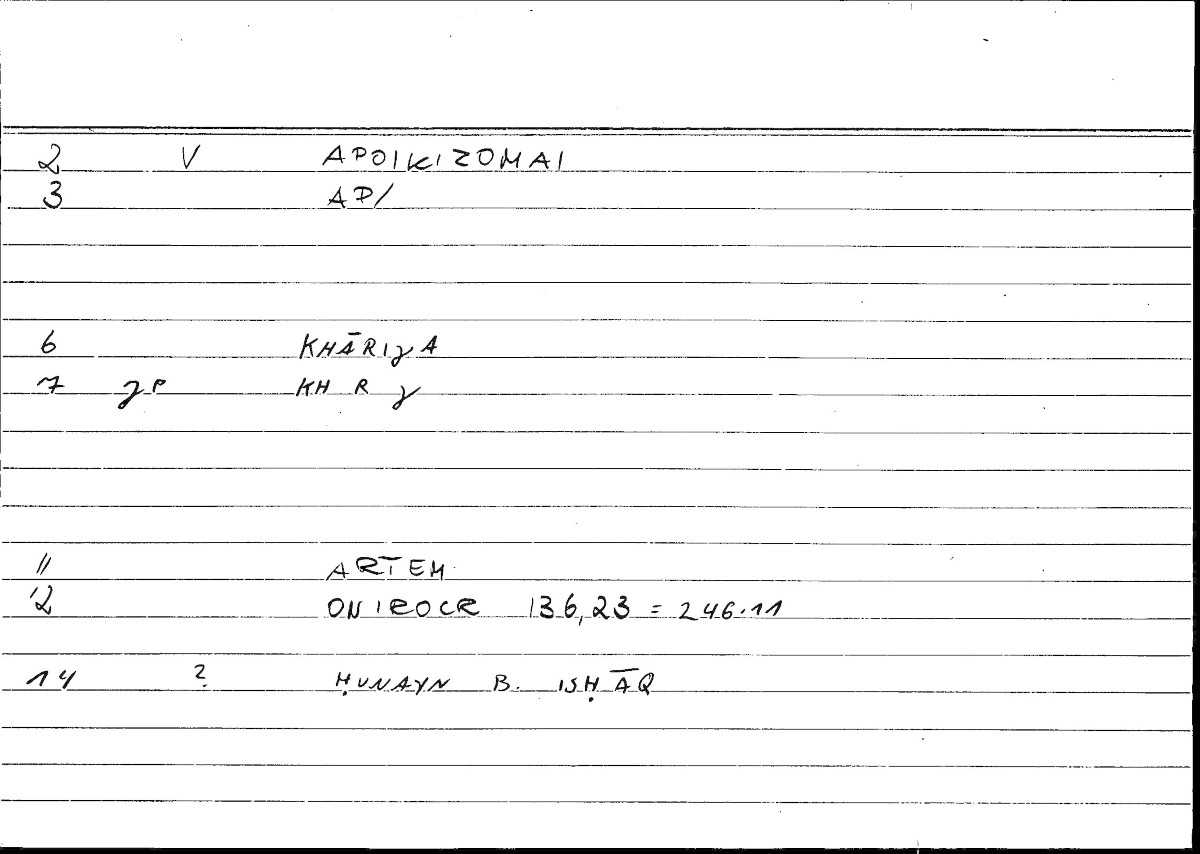 2 V APOIKIZOMAI
3 AP/
6 KHĀRIJA
7 JP KH R J
11 ARTEM.
12 ONIROCR 136,23 = 246.11
14 ? ḤUNAYN B. ISḤĀQ